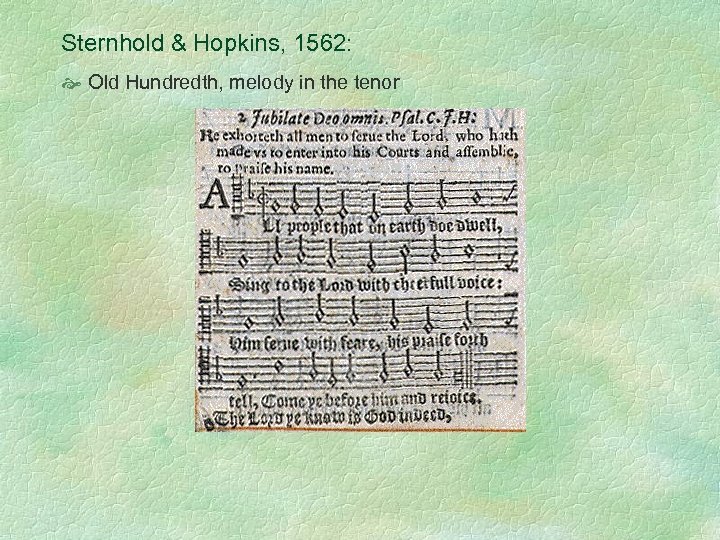 Sternhold & Hopkins, 1562:
Old Hundredth, melody in the tenor
2 Jubilate Deo omnis. Psal. C. J. H:
He exhorteth all men to serue the Lord, who hath
made vs to enter into his Courts and assemblie,
to praise his name.
ALl people that on earth doe dwell,
Sing to the Lord with cheerfull voice:
Him serue with feare, his praise forth
tell, Come ye before him and reioice.
The Lord ye know is God indeed,